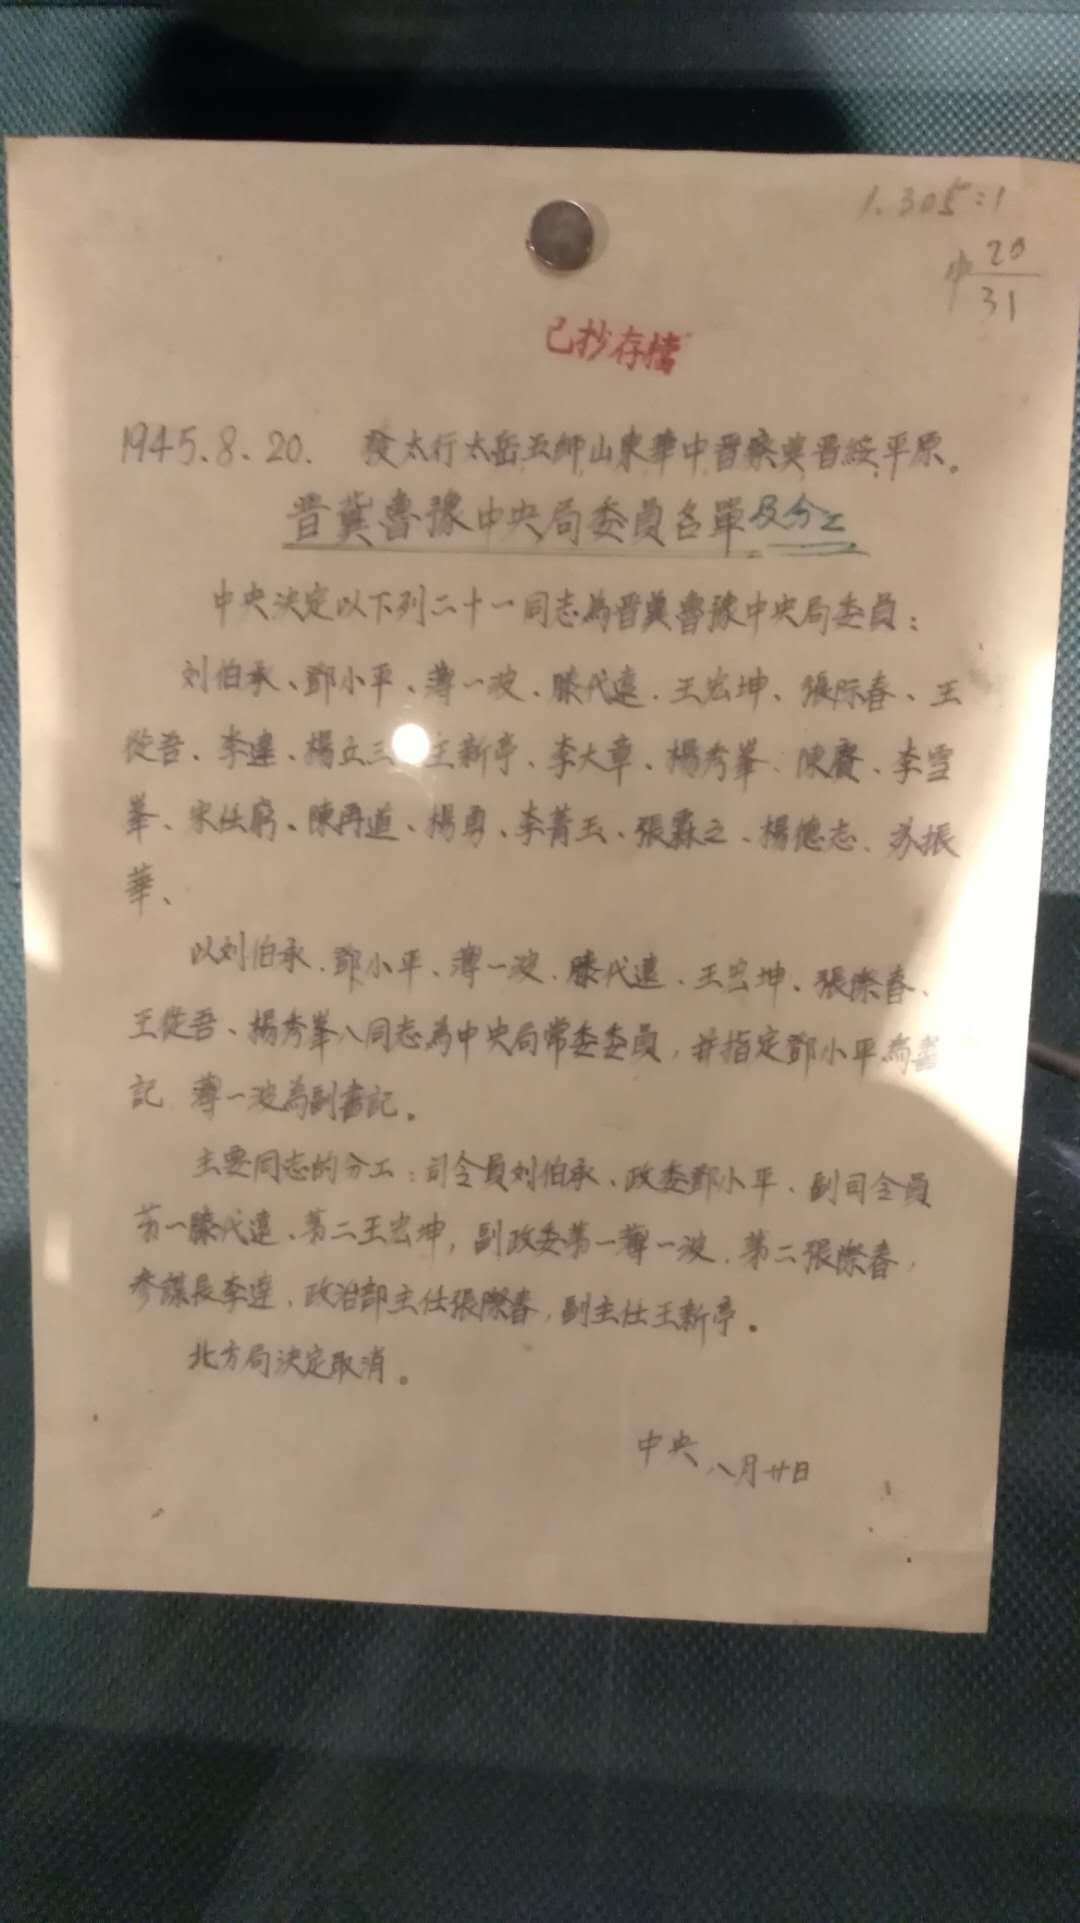 1.305:1
中 20
31
已抄存檔
1945.8.20. 發太行太岳五師山東華中晋察冀晋綏平原。
晋冀魯豫中央局委員名單及分工
中央决定以下列二十一同志為晋冀魯豫中央局委員：
刘伯承、鄧小平、薄一波、滕代遠、王宏坤、張际春、王
從吾、李達、楊立三 王新亭、李大章、楊秀峯、陳賡、李雪
峯、宋任窮、陳再道、楊勇、李菁玉、張霖之、楊德志、苏振
華、
以刘伯承、鄧小平、薄一波、滕代遠、王宏坤、張際春、
王從吾、楊秀峯八同志為中央局常委委員，并指定鄧小平為書
記 薄一波為副書記。
主要同志的分工：司令員刘伯承、政委鄧小平、副司令員
苐一滕代遠、苐二王宏坤，副政委苐一薄一波、苐二張際春，
参謀長李達，政治部主任張際春，副主任王新亭。
北方局决定取消。
中央 八月廿日